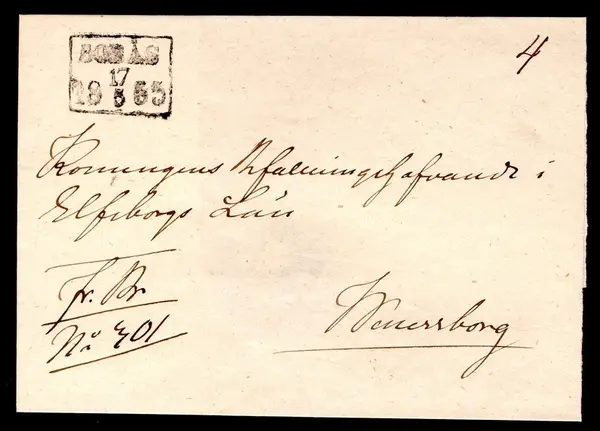 BORÅS
17
18 5 55
4
Konungens Befallningshafvande i
Elfsborgs Län
fr. Br
No 401
Wenersborg